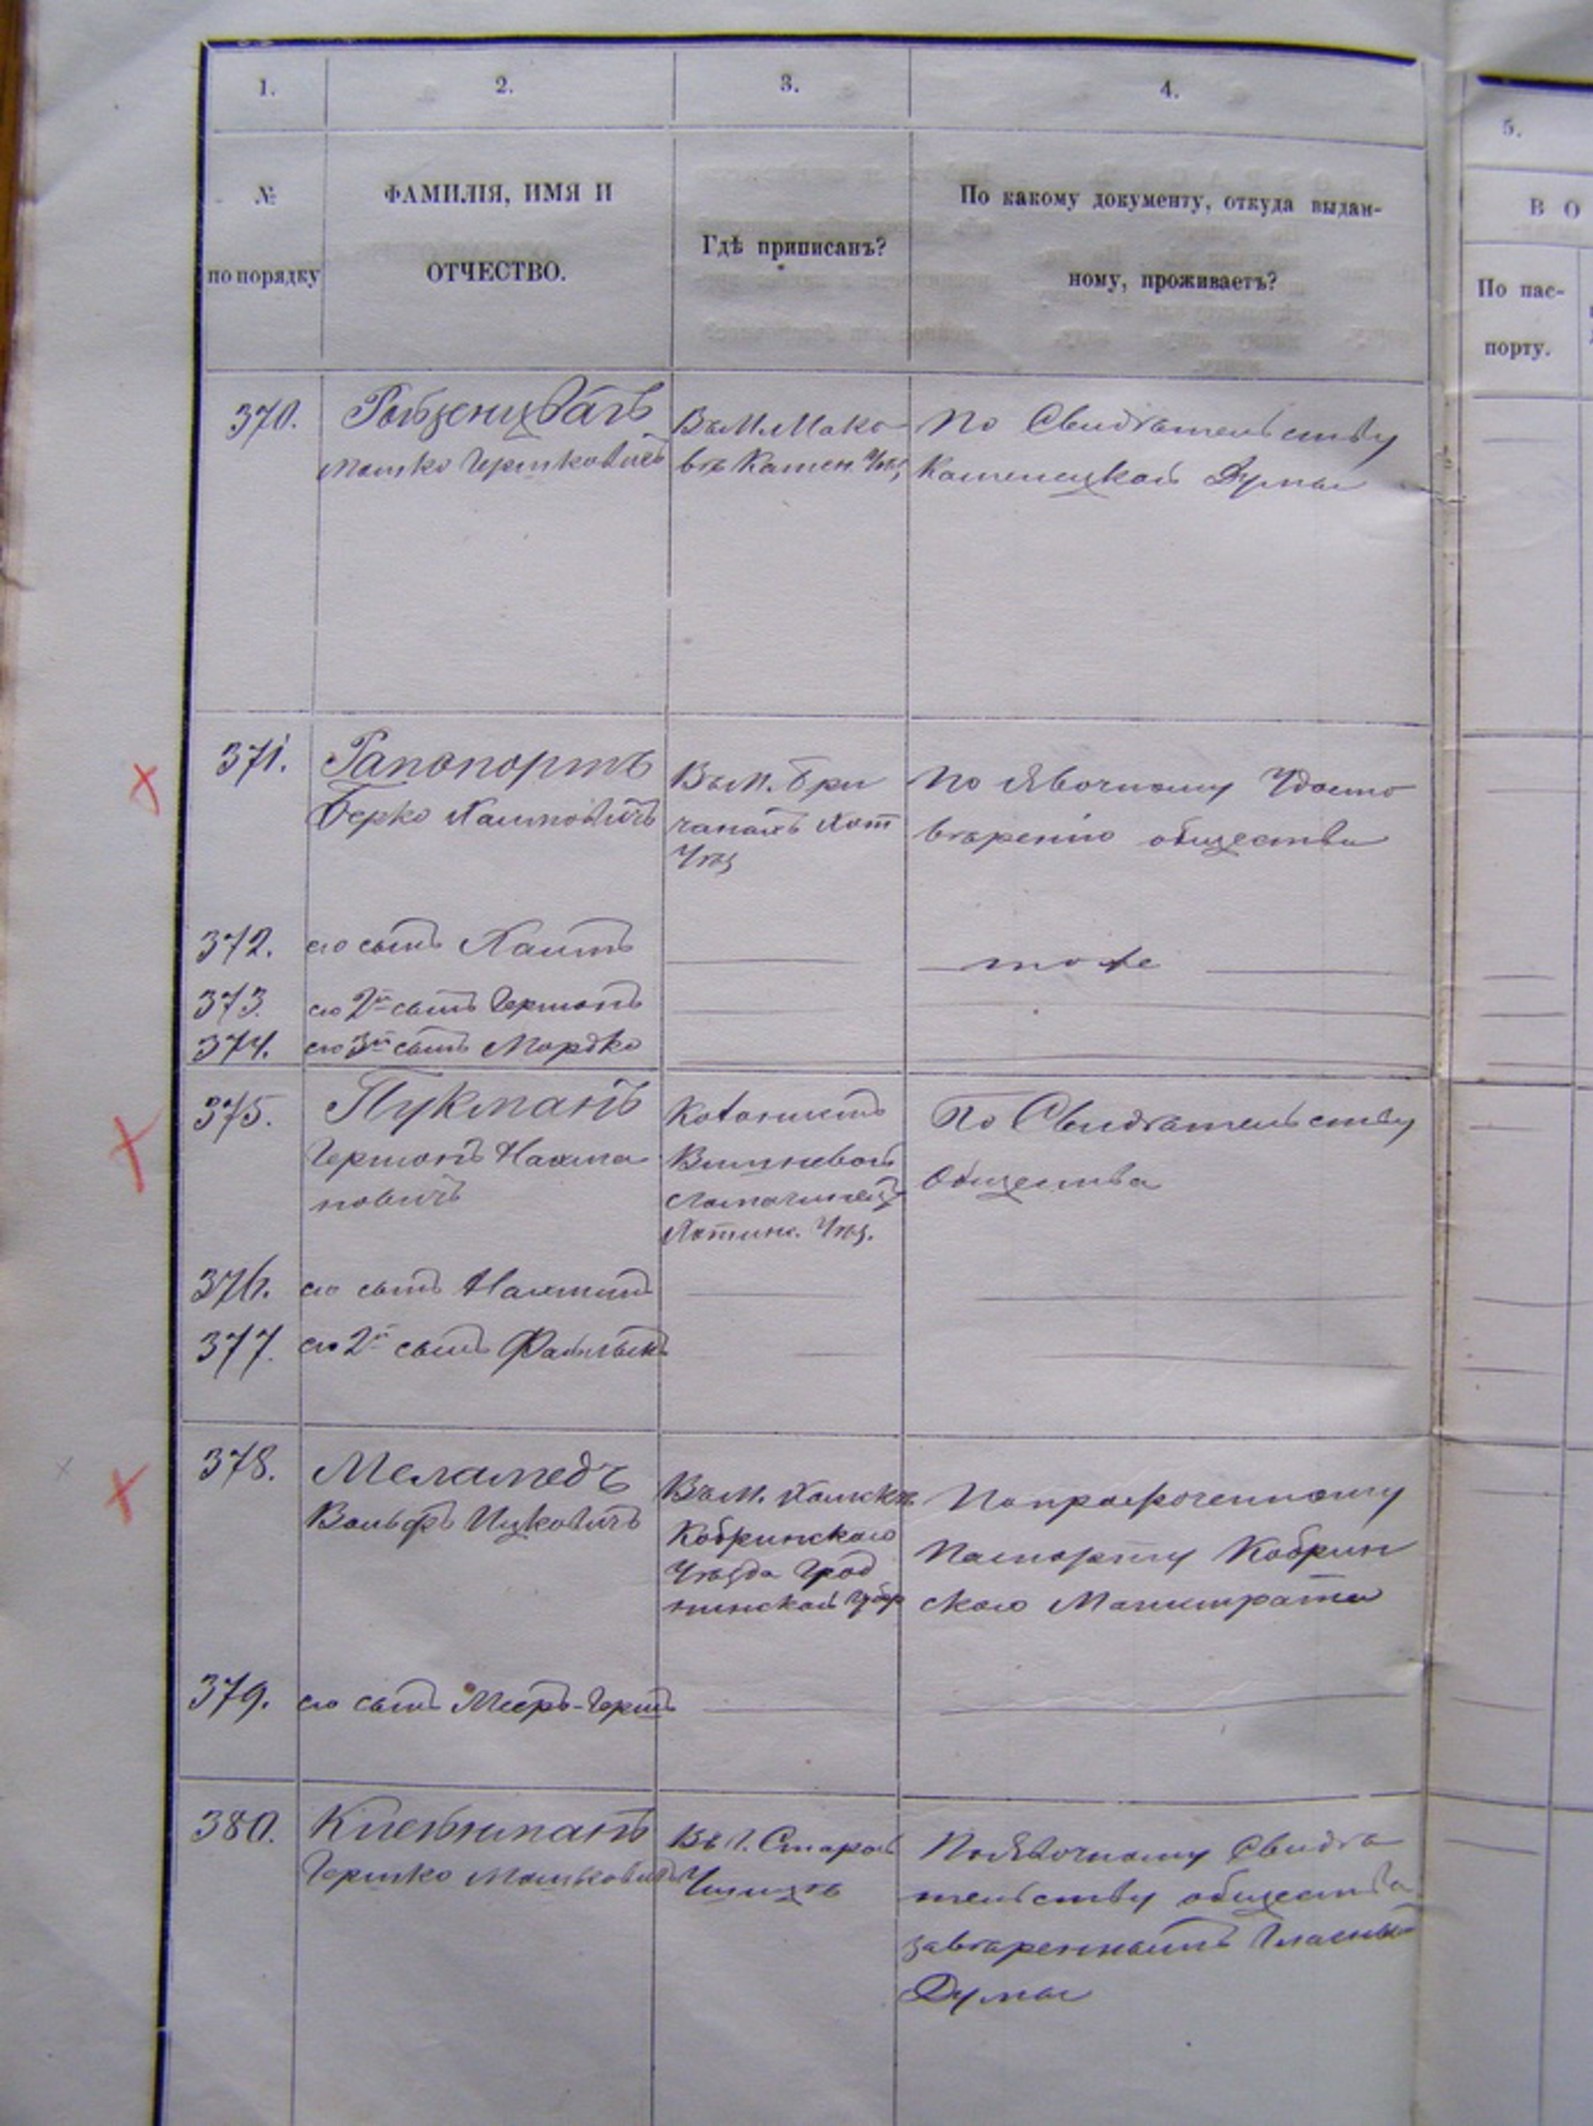 1. 2. 3. 4. 5.
№ по порядку
ФАМИЛІЯ, ИМЯ И
ОТЧЕСТВО.
Гдѣ приписанъ?
По какому документу, откуда выдан-
ному, проживаетъ?
В О
По пас-
порту.
370.
Мошко Гершковичъ
Въ М. Мако
вѣ Камен. Уѣз
По Свидѣтельству
Каменецкой Думы
371.
Рапопортъ
Берко Хаимовичъ
Въ М. Бри
чанахъ Хот
Уѣз
По Явочному Удосто
вѣренію общества
372. его сынъ Хаимъ
тоже
373. его 2й сынъ Гершонъ
374. его 3й сынъ Мордко
375.
Пукманъ
Гершонъ Нахма
новичъ
Колонистъ
Хотинс. Уѣз.
По Свидѣтельству
Общества
376. его сынъ
377. его 2й сынъ
378.
Меламедъ
Вольфъ Ицковичъ
Въ М. Хомскѣ
Кобринскаго
Уѣзда Грод
ненской Губер
По просроченному
Паспорту Кобрин
скаго Магистрата
379. его сынъ Мееръ-Гершъ
380.
Гершко Мошковичъ
Въ Г. Старой
Ушицѣ
По Явочному Свидѣ
тельству общества
завѣреннымъ Гласный
Думы